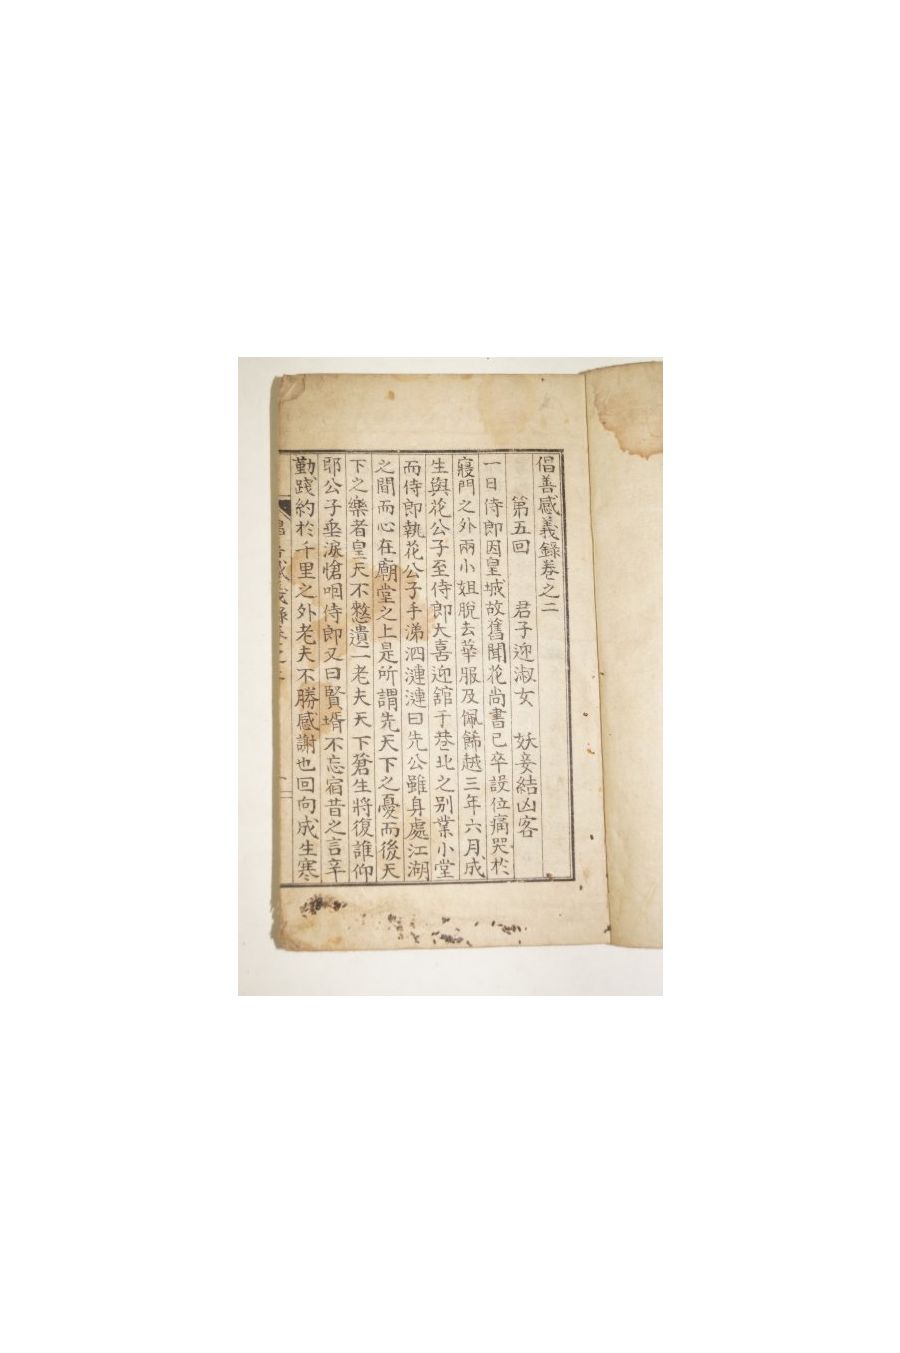 倡善感義錄卷之二
第五回 君子迎淑女 妖妾結凶客
一日侍郎因皇城故舊聞花尚書已卒設位痛哭於
寢門之外兩小姐脫去華服及佩飾越三年六月成
生與花公子至侍郎大喜迎舘于巷北之别業小堂
而侍郎執花公子手涕泗漣漣曰先公雖身處江湖
之間而心在廟堂之上是所謂先天下之憂而後天
下之樂者皇天不憗遺一老夫天下蒼生將復誰仰
耶公子垂淚愴咽侍郎又曰賢壻不忘宿昔之言辛
勤踐約於千里之外老夫不勝感謝也回向成生寒